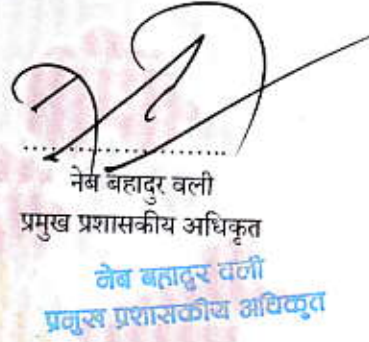 नेब बहादुर वली
प्रमुख प्रशासकीय अधिकृत
नेब बहादुर वली
प्रमुख प्रशासकीय अधिकृत